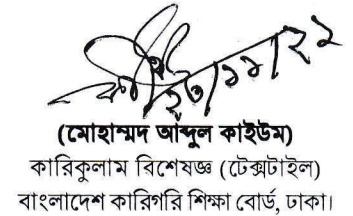 ২৩/১১/২১
(মোহাম্মদ আব্দুল কাইউম)
কারিকুলাম বিশেষজ্ঞ (টেক্সটাইল)
বাংলাদেশ কারিগরি শিক্ষা বোর্ড, ঢাকা।